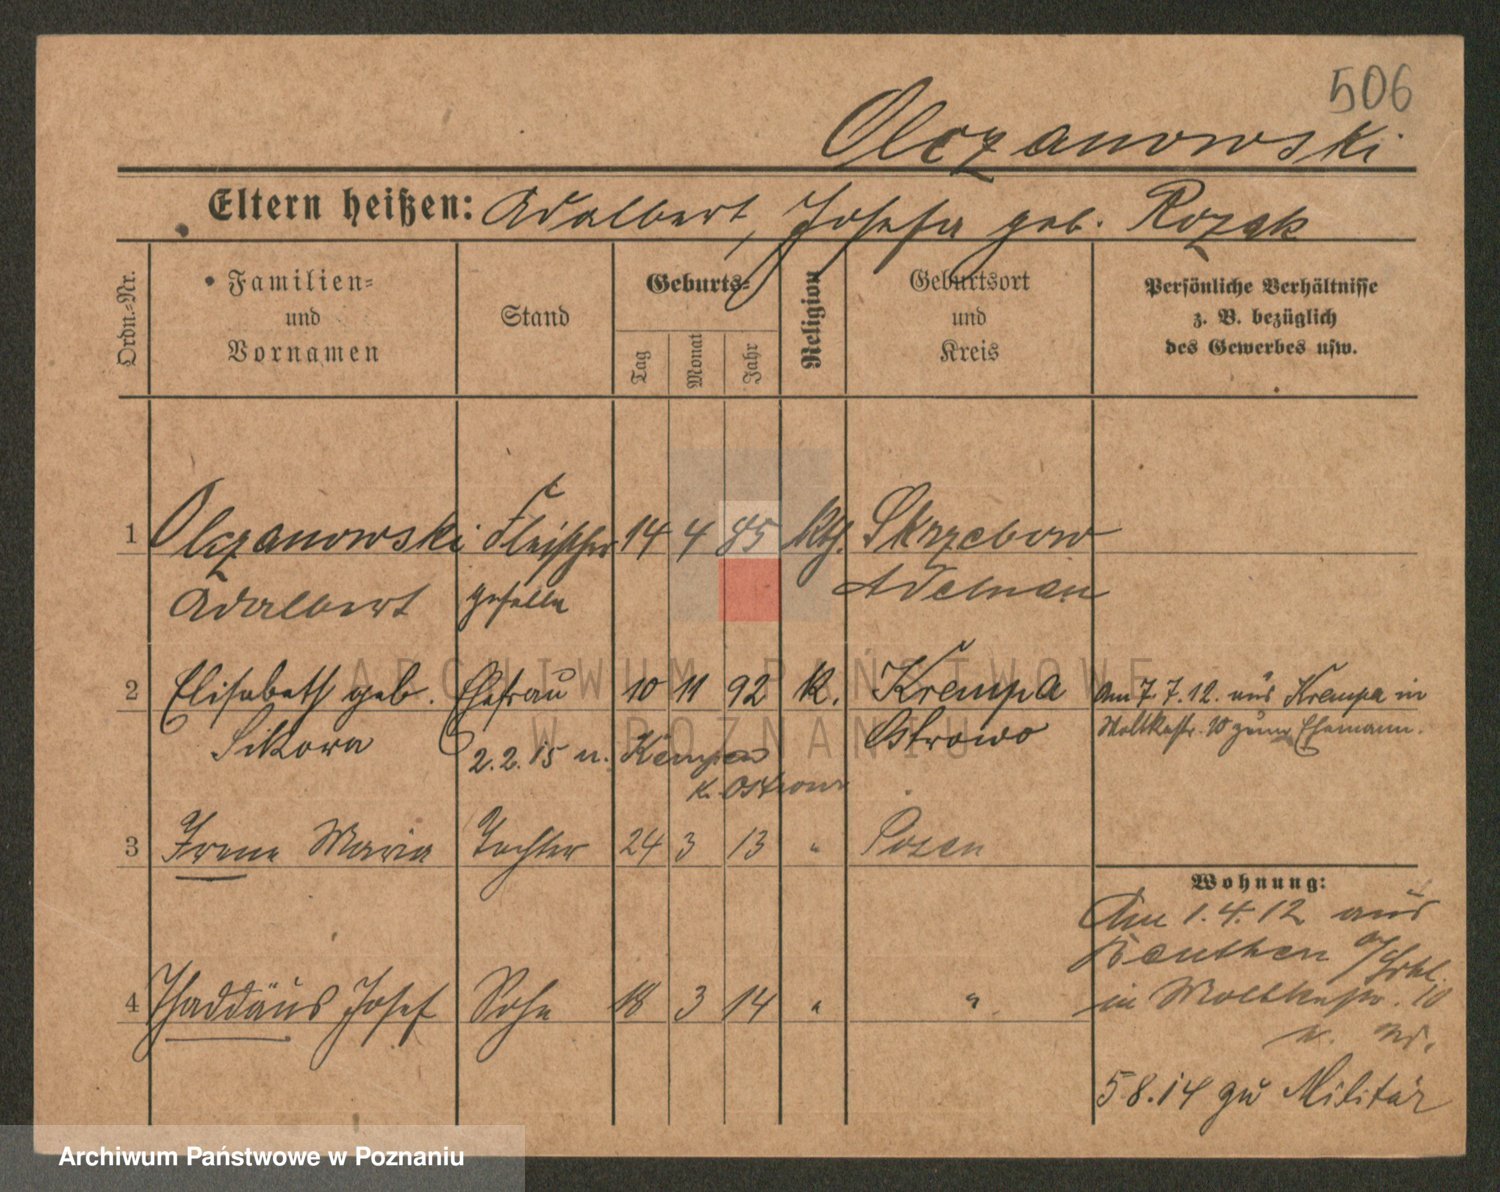 506
Olczanowski
Eltern heißen: Adalbert, Josefa geb. Rozak
Ordn.-Nr.
Familien- und Vornamen
Stand
Geburts-
Tag
Monat
Jahr
Religion
Geburtsort und Kreis
Persönliche Verhältnisse
z. B. bezüglich
des Gewerbes usw.
1 Olczanowski Fleischer 14 4 85 kth. Skrzebow
Adalbert geselle Adelnau
2 Elisabeth geb. Ehefrau 10 11 92 k. Krempa Am 7.7.12. aus Krempa in
Sikora Ostrowo Moltkestr. 10 zum Ehemann.
2.2.15 n. Kempen
K. Ostrowo
3 Irene Maria Tochter 24 3 13 " Posen
Wohnung:
Am 1.4.12 aus
Beuthen
4 Thaddäus Josef Sohn 18 3 14 " "
in Moltkestr. 10
5.8.14 zu Militär
ARCHIWUM PAŃSTWOWE
W POZNANIU
Archiwum Państwowe w Poznaniu